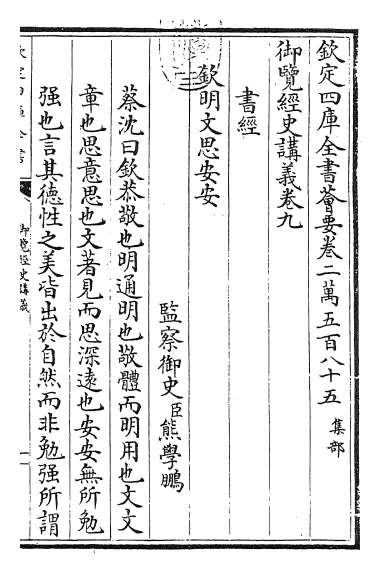 欽定四庫全書薈要卷二萬五百八十五 集部
御覽經史講義卷九
書經
欽明文思安安
監察御史臣熊學鵬
蔡沈曰欽恭敬也明通明也敬體而明用也文文
章也思意思也文著見而思深遠也安安無所勉
强也言其德性之美皆出於自然而非勉强所謂
御覽經史講義